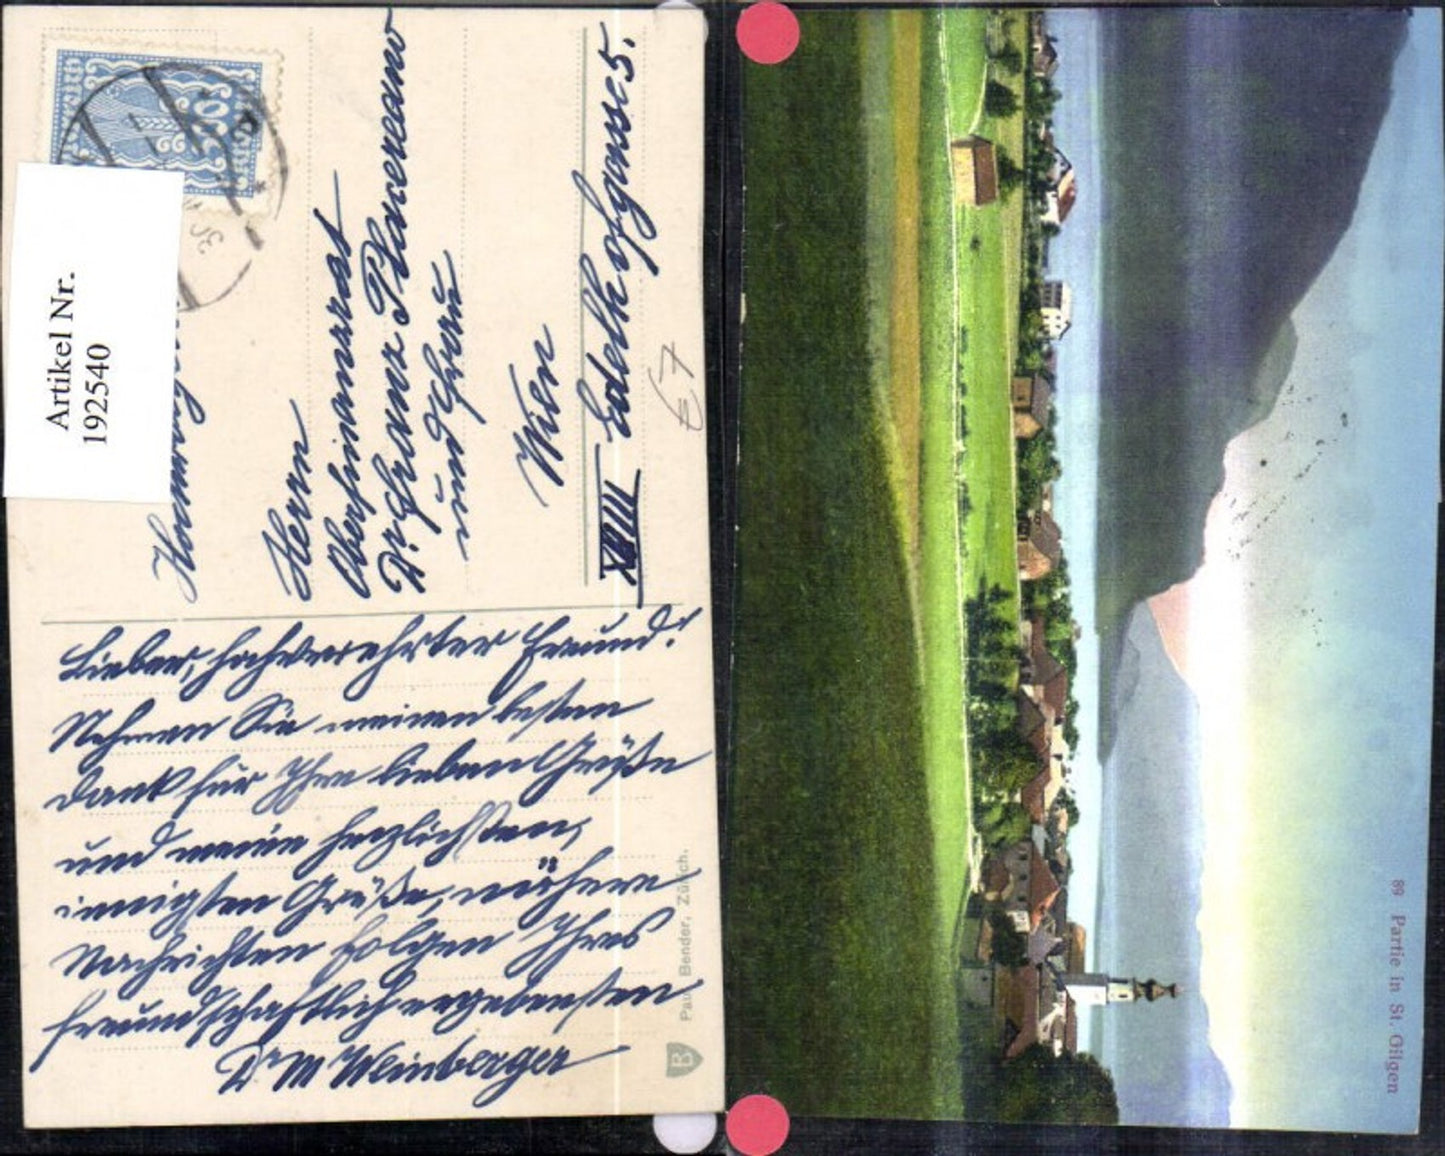 Artikel Nr.
192540
30
Herrn
Oberfinanzrat
Dr Franz
und Frau
Wien
XVIII Edelhofgasse 5.
€ 7
Lieber, hochverehrter Freund!
Nehmen Sie meinen besten
Dank für Ihre lieben Grüße
und meine herzlichsten,
innigsten Grüße, nähere
Nachrichten folgen Ihres
freundschaftlich ergebensten
Dr M Weinberger
Paul Bender, Zürich.
B
89 Partie in St. Gilgen